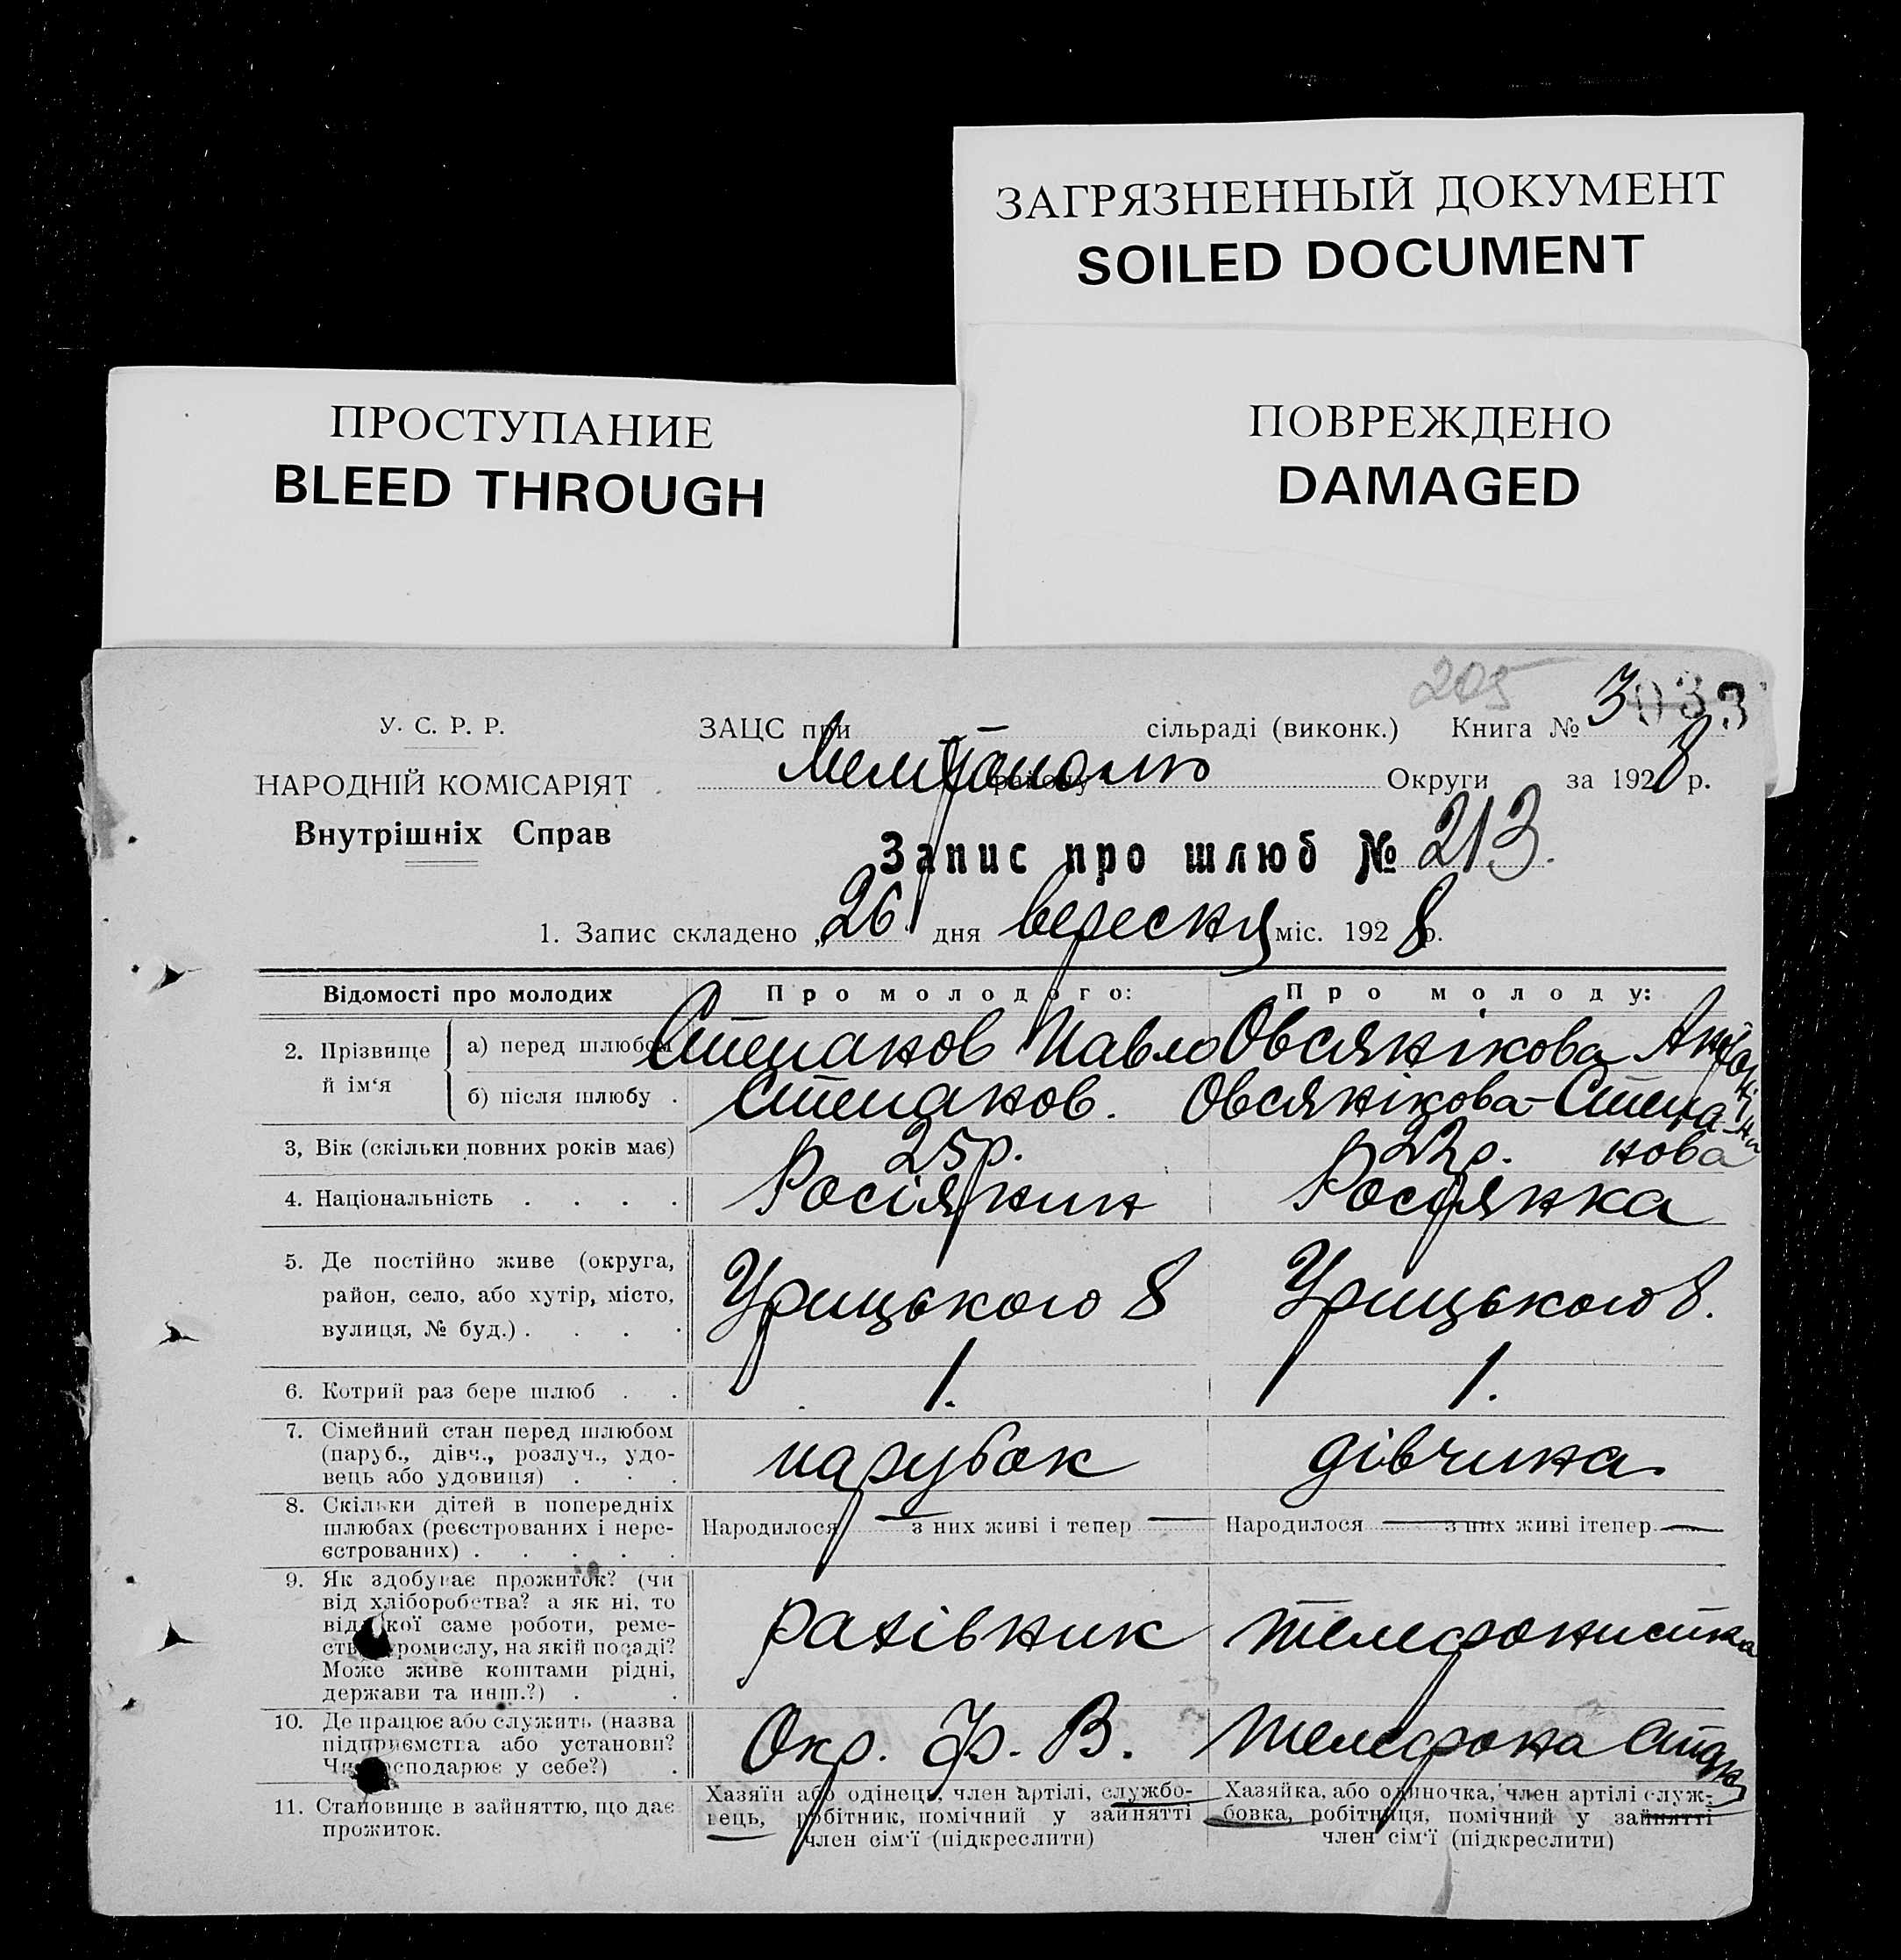 ЗАГРЯЗНЕННЫЙ ДОКУМЕНТ
SOILED DOCUMENT
ПРОСТУПАНИЕ
BLEED THROUGH
ПОВРЕЖДЕНО
DAMAGED
205
У. С. Р. Р.
НАРОДНІЙ КОМІСАРІЯТ
Внутрішніх Справ
ЗАЦС при сільраді (виконк.) Книга № 3 033
Мелітополю району Округи за 1928 р.
Запис про шлюб № 213.
1. Запис складено „26" дня вересня міс. 1928 р.
Відомості про молодих
Про молодого:
Про молоду:
2. Прізвище й ім‘я
а) перед шлюбом
Степанов Павло
Овсянікова Антоніни
б) після шлюбу .
Степанов.
Овсянікова-Степанова
3, Вік (скільки повних років має)
25р.
22р.
4. Національність . . . .
Росіянин
Росіянка
5. Де постійно живе (округа,
район, село, або хутір, місто,
вулиця, № буд.) . . . .
Урицького 8
Урицького 8.
6. Котрий раз бере шлюб . .
1.
1.
7. Сімейний стан перед шлюбом
(паруб., дівч., розлуч., удо-
вець або удовиця) . . .
парубок
дівчина
8. Скільки дітей в попередніх
шлюбах (реєстрованих і нере-
єстрованих) . . . . .
Народилося — з них живі і тепер —
Народилося — з них живі ітепер —
9. Як здобуває прожиток? (чи
від хліборобства? а як ні, то
від кої саме роботи, реме-
ст ромислу, на якій посаді?
Може живе коштами рідні,
держави та инш.?) . .
рахівник
телефонистка
10. Де працює або служить (назва
підприємства або установи?
Чи сподарює у себе?) .
Окр. Ф. В.
Телефона
11. Становище в зайняттю, що дає
прожиток.
Хазяїн або одінець, член артілі, службо-
вець, робітник, помічний у зайнятті
член сім‘ї (підкреслити)
Хазяйка, або одиночка, член артілі служ-
бовка, робітниця, помічний у зайнятті
член сім‘ї (підкреслити)